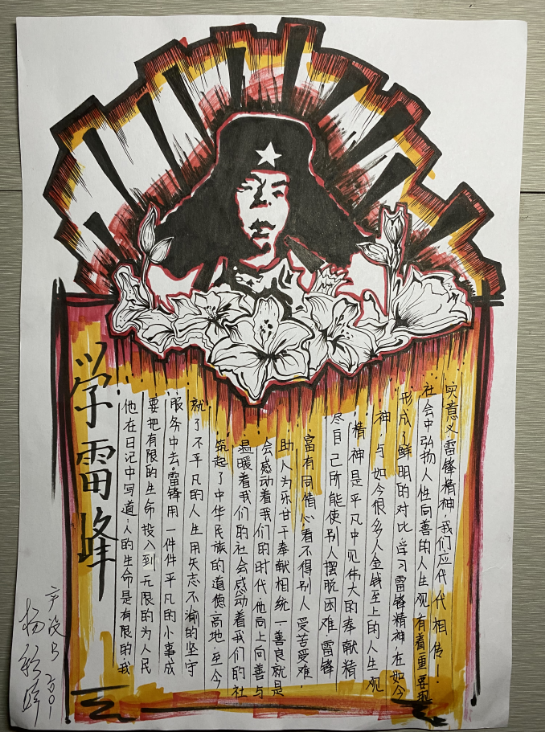 学雷峰
他在日记中写道·人的生命是有限的我
要把有限的生命投入到无限的为人民
服务中去·雷锋用一件件平凡的小事成
就了不平凡的人生用矢志不渝的坚守
筑起了中华民族的道德高地·至今
温暖着我们的社会感动着我们的社
会感动着我们的时代他向上向善与
助人为乐甘于奉献相统一善良就是
富有同情心看不得别人受苦受难·
尽自己所能使别人摆脱困难·雷锋
精神是平凡中见伟大的奉献精
神·与如今很多人金钱至上的人生观
形成了鲜明的对比·学习雷锋精神·在如今
社会中弘扬人性向善的人生观有着重要现
实意义·雷锋精神·我们应代代相传!
产设B 2001